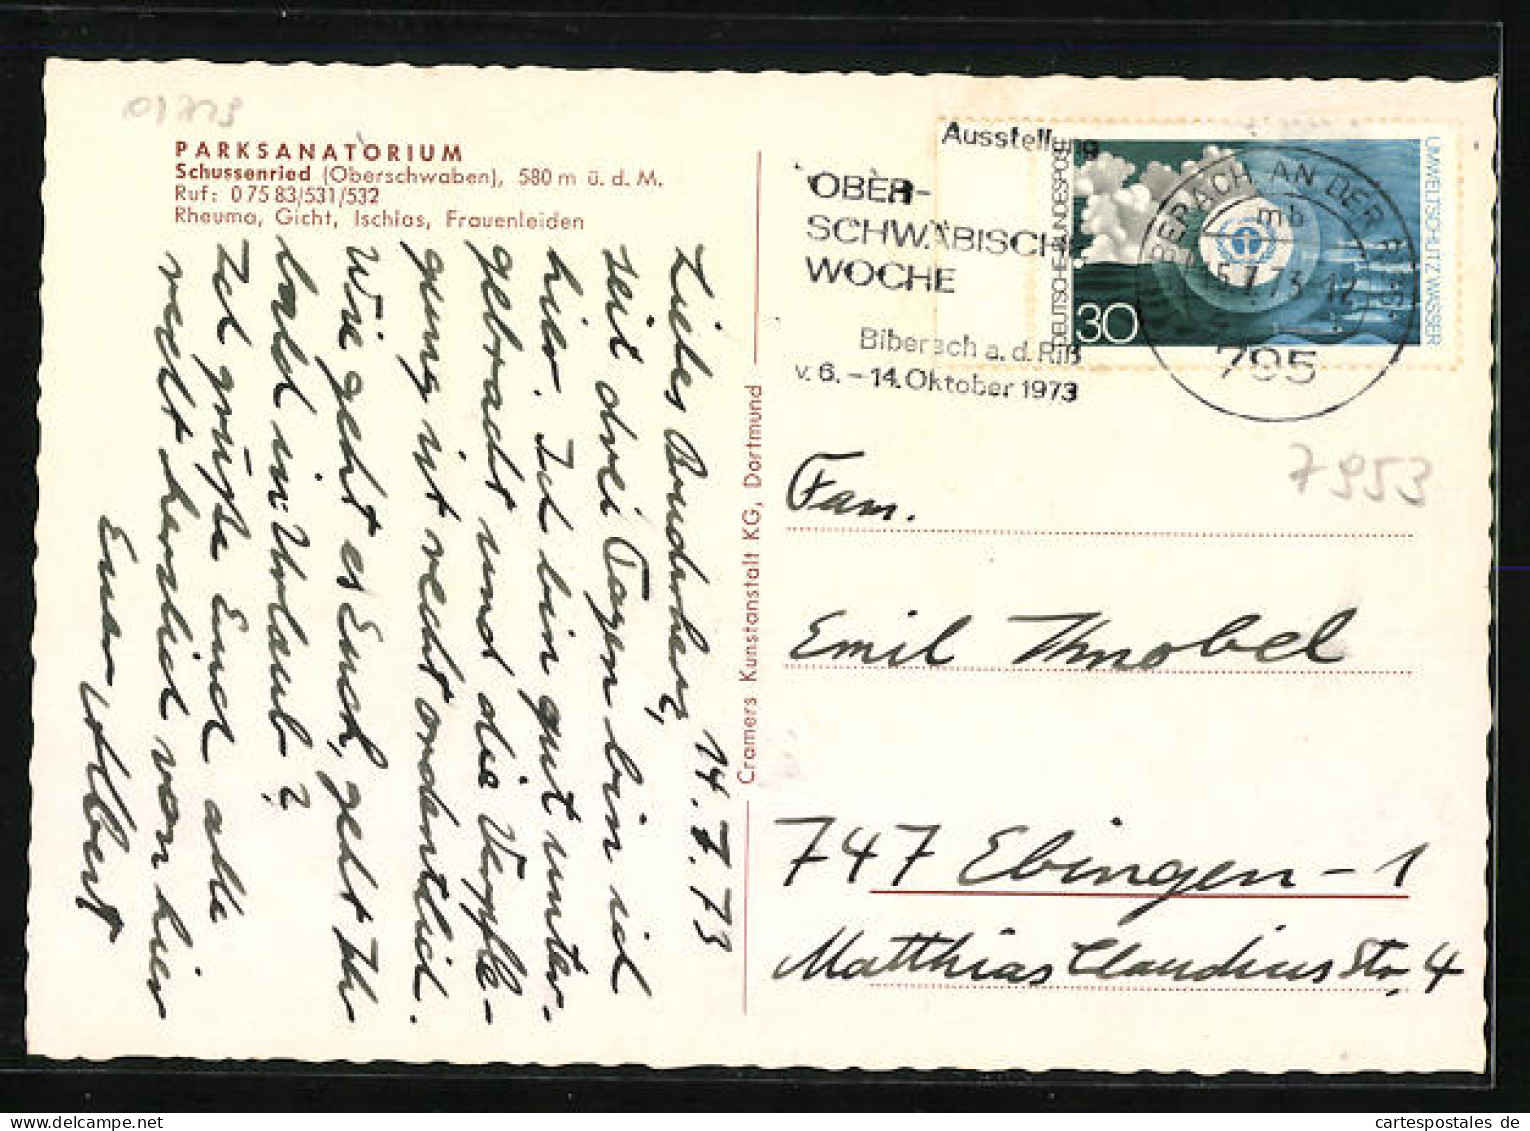 01723
PARKSANATORIUM
Schussenried (Oberschwaben), 580 m ü. d. M.
Ruf: 0 75 83/531/532
Rheuma, Gicht, Ischias, Frauenleiden
14.7.73
Liebes Bruderherz,
seit drei Tagen bin ich
hier. Ich bin gut unter-
gebracht und die Verpfle-
gung ist recht ordentlich.
Wie geht es Euch, geht Ihr
bald in Urlaub?
Ich grüße Euch alle
recht herzlich von hier
Euer Albert
Cramers Kunstanstalt KG, Dortmund
Ausstellung
OBER-
SCHWÄBISCHE
WOCHE
Biberach a. d. Riß
v. 6. – 14. Oktober 1973
DEUTSCHE BUNDESPOST
30
UMWELTSCHUTZ WASSER
BIBERACH AN DER RISS
mb
15.7.73-12
795
7953
Fam.
Emil Knobel
747 Ebingen-1
Matthias Claudius Str. 4
oldthing.com
cartespostales de